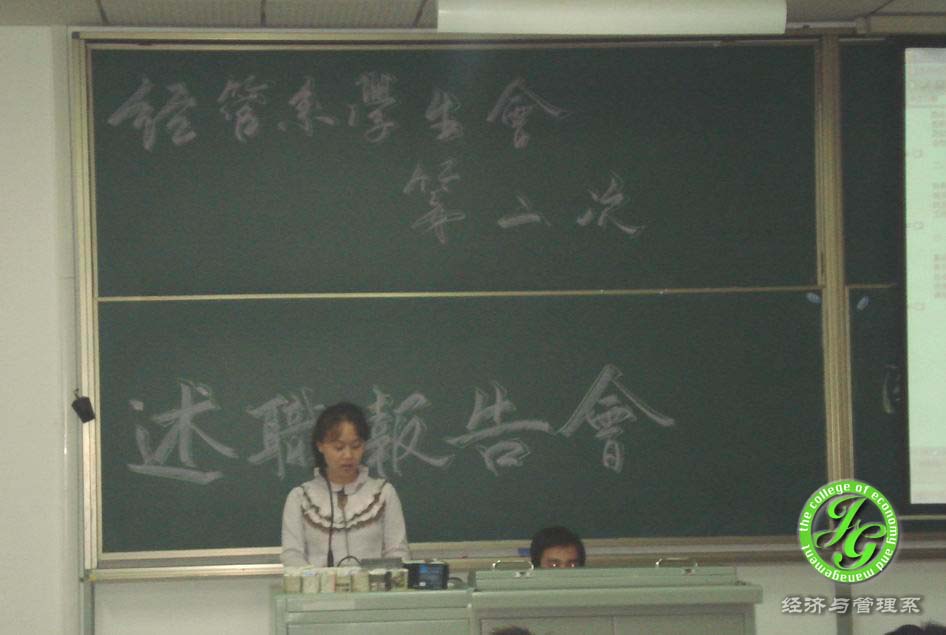 経管系學生會
第二次
述職報告會
the college of economy and management
JG
经济与管理系